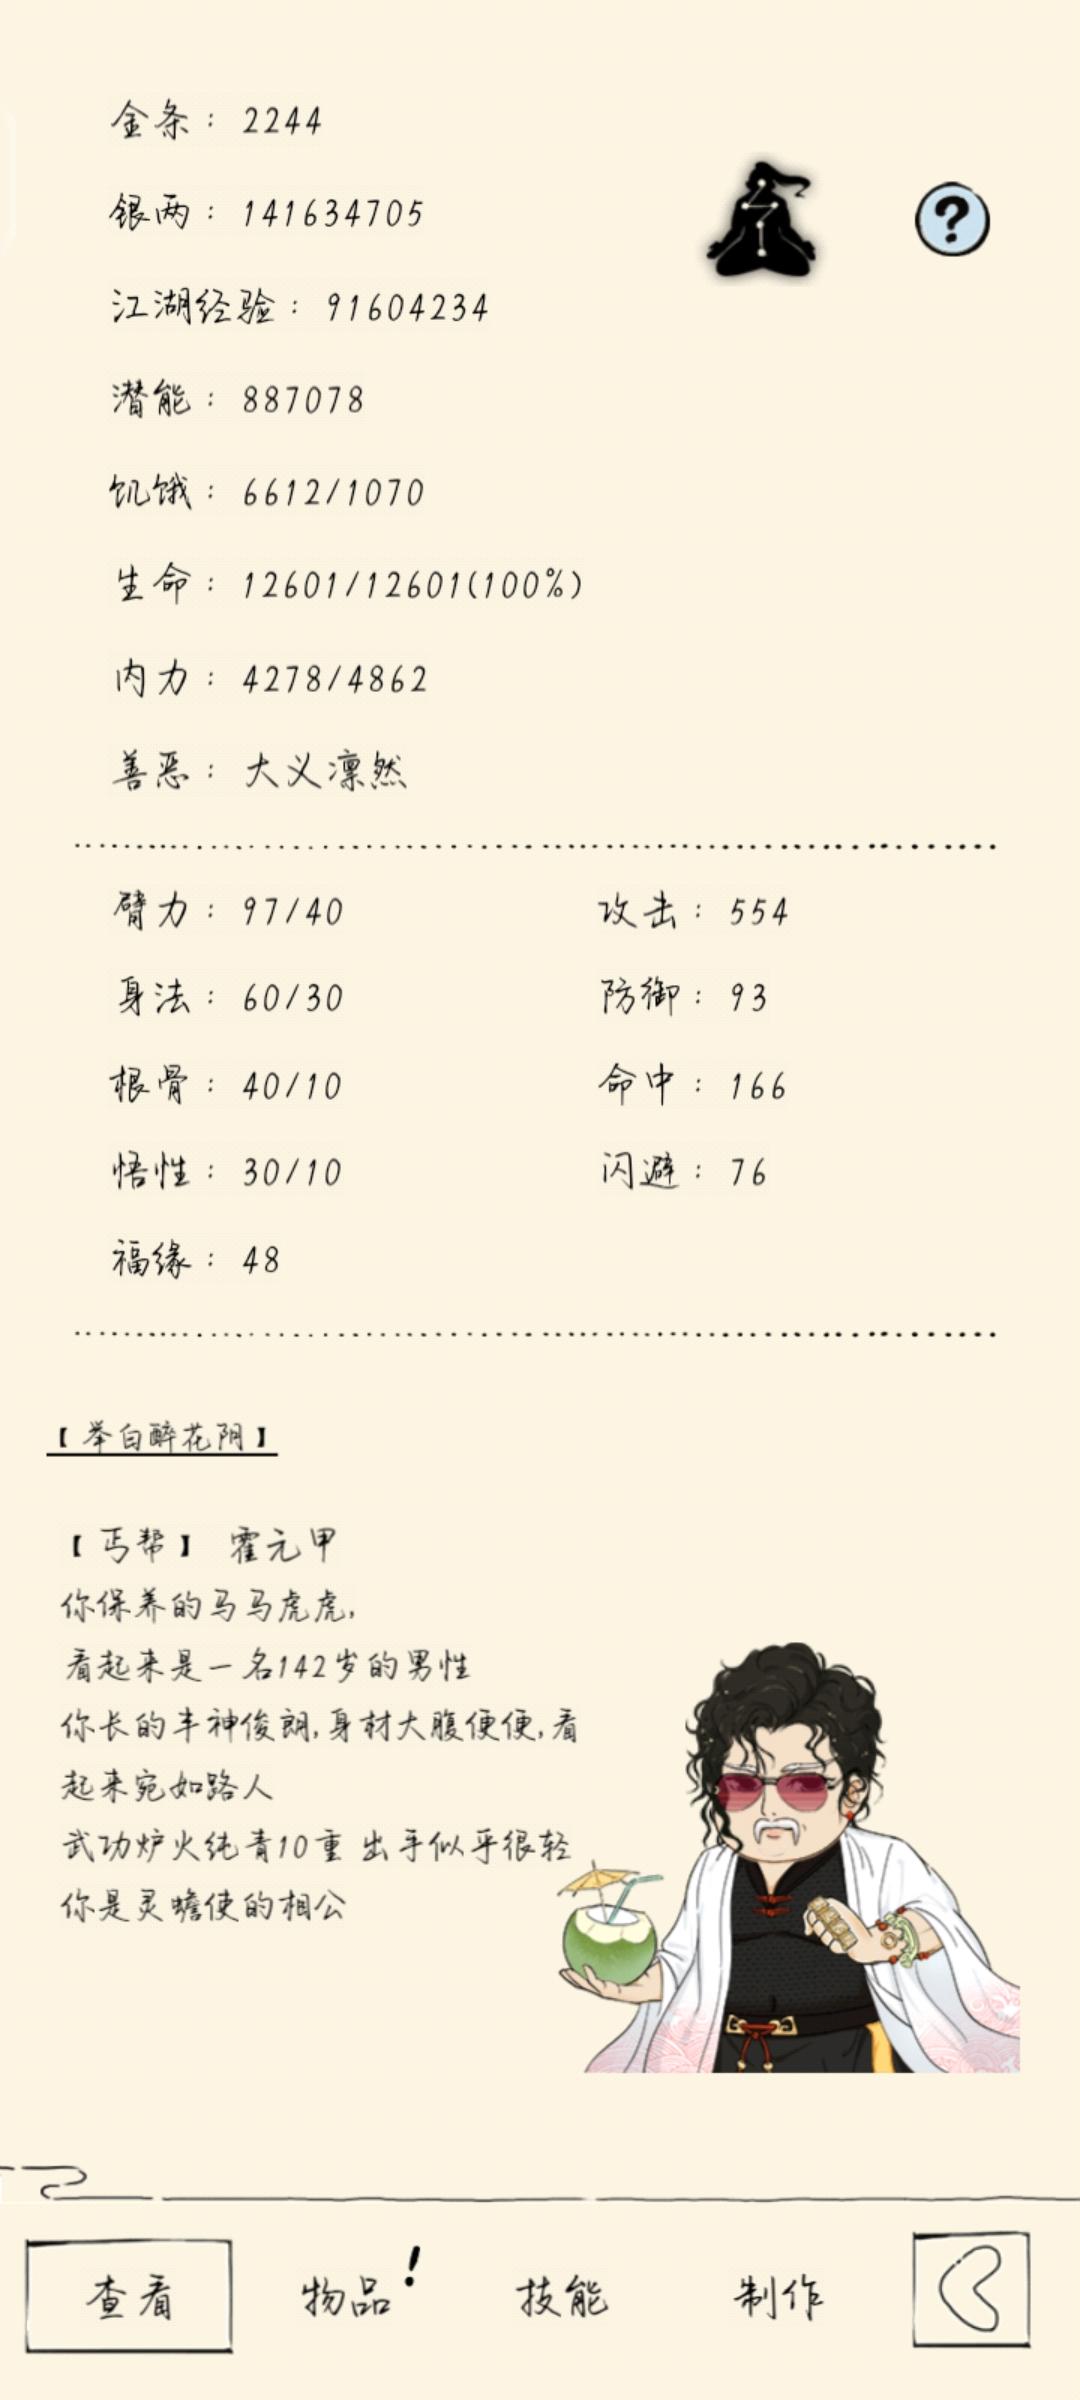 金条：2244
银两：141634705
江湖经验：91604234
潜能：887078
饥饿：6612/1070
生命：12601/12601(100%)
内力：4278/4862
善恶：大义凛然
臂力：97/40 攻击：554
身法：60/30 防御：93
根骨：40/10 命中：166
悟性：30/10 闪避：76
福缘：48
【举白醉花阴】
【丐帮】 霍元甲
你保养的马马虎虎,
看起来是一名142岁的男性
你长的丰神俊朗,身材大腹便便,看
起来宛如路人
武功炉火纯青10重 出手似乎很轻
你是灵蟾使的相公
查看 物品! 技能 制作